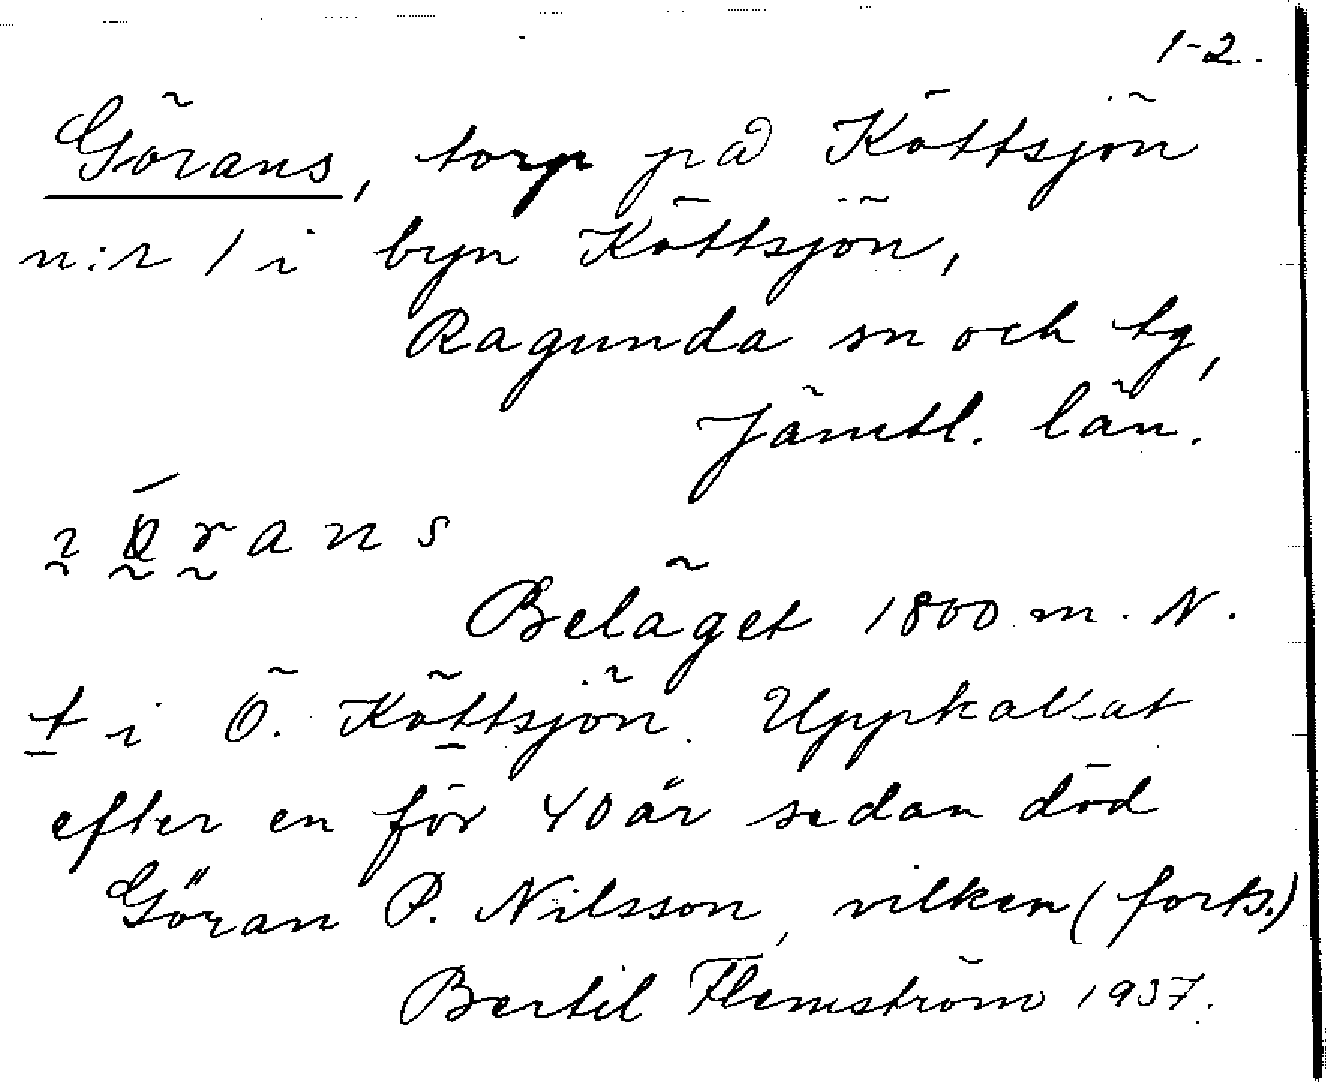 1-2.
Görans, torp på Köttsjön
n:r 1 i byn Köttsjön,
Ragunda sn och tg,
Jämtl. län.
rans
Beläget 1800 m. N.
t i Ö. Köttsjön. Uppkallat
efter en för 40 år sedan död
Göran P. Nilsson, vilken (forts.)
Bertil Flemström 1937.